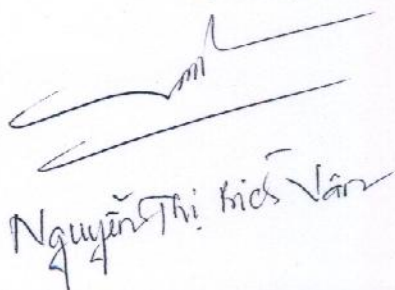 Nguyễn Thị Bích Vân